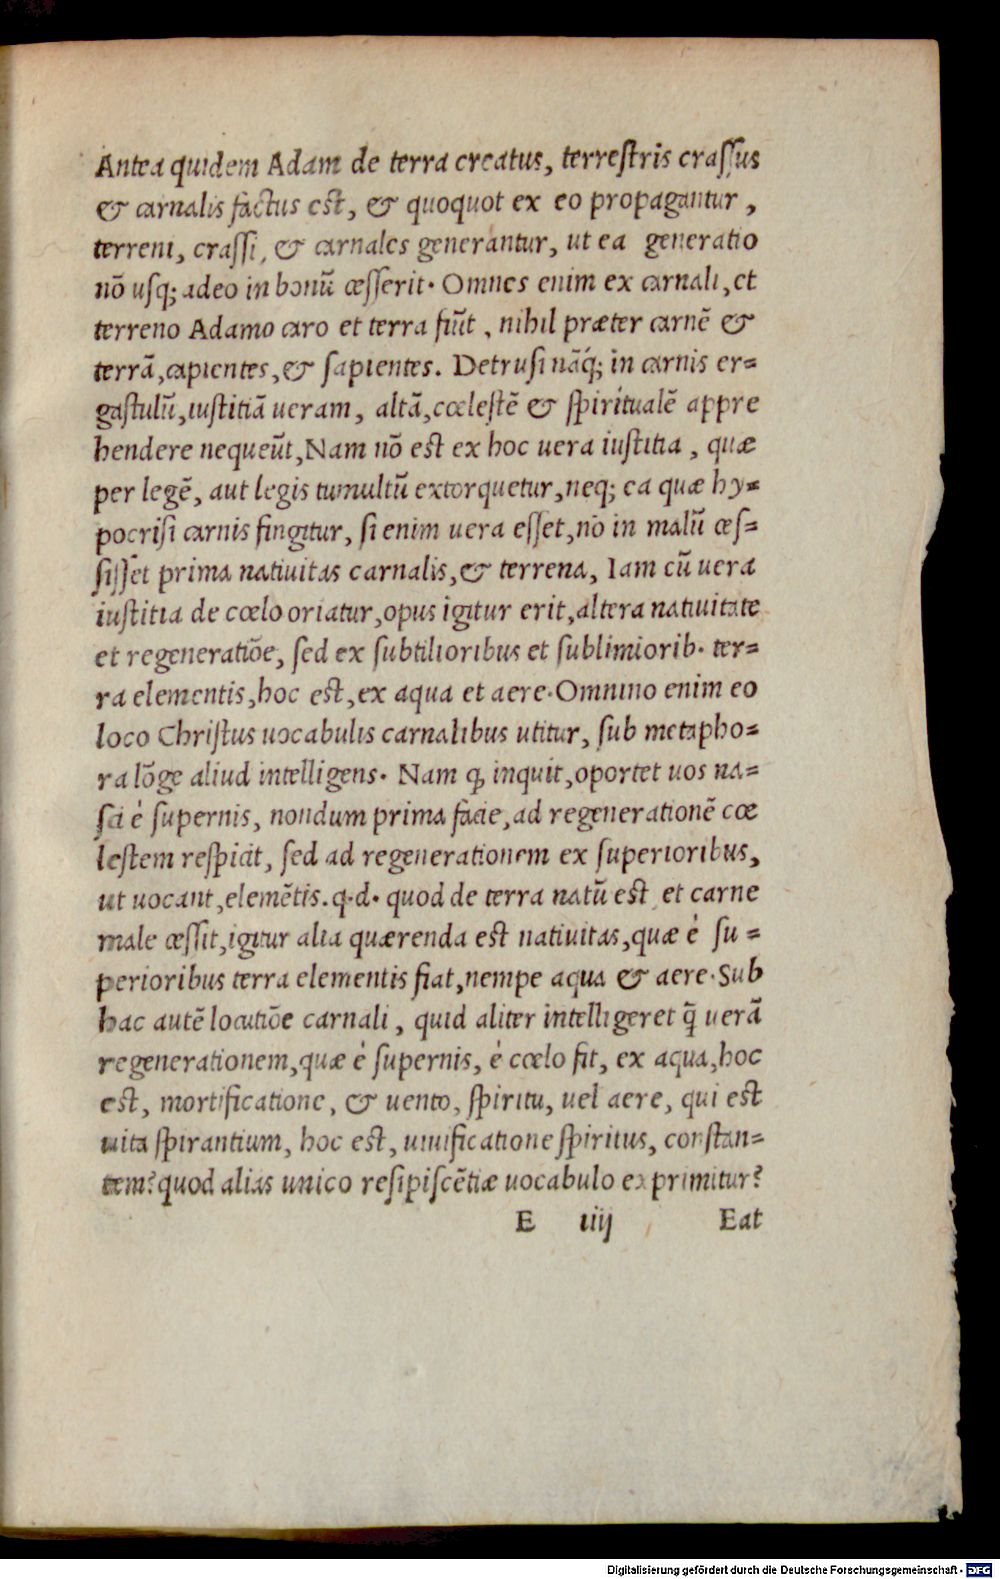 Antea quidem Adam de terra creatus, terrestris crassus
& carnalis factus est, & quoquot ex eo propagantur,
terreni, crassi, & carnales generantur, ut ea generatio
nō usq; adeo in bonū cesserit. Omnes enim ex carnali, et
terreno Adamo caro et terra fiūt, nihil præter carnē &
terrā, capientes, & sapientes. Detrusi nāq́; in carnis er=
gastulū, iustitiā ueram, altā, cœlestē & spiritualē appre
hendere nequeūt, Nam nō est ex hoc uera iustitia, quæ
per legē, aut legis tumultū extorquetur, neq; ea quæ hy=
pocrisi carnis fingitur, si enim uera esset, nō in malū ces=
sisset prima natiuitas carnalis, & terrena, Iam cū uera
iustitia de cœlo oriatur, opus igitur erit, altera natiuitate
et regeneratiōe, sed ex subtilioribus et sublimiorib. ter=
ra elementis, hoc est, ex aqua et aere. Omnino enim eo
loco Christus uocabulis carnalibus utitur, sub metapho=
ra lōge aliud intelligens. Nam ꝙ inquit, oportet uos na=
sci è supernis, nondum prima facie, ad regenerationē cœ
lestem respicit, sed ad regenerationem ex superioribus,
ut uocant, elemētis. q. d. quod de terra natū est et carne
male cessit, igitur alia quærenda est natiuitas, quæ è su=
perioribus terra elementis fiat, nempe aqua & aere. Sub
hac autē locutiōe carnali, quid aliter intelligeret q̄ uerā
regenerationem, quæ è supernis, è cœlo fit, ex aqua, hoc
est, mortificatione, & uento, spiritu, uel aere, qui est
uita spirantium, hoc est, uiuificatione spiritus, constan=
tem? quod alias unico resipiscētiæ uocabulo exprimitur?
E iiij Eat
Digitalisierung gefördert durch die Deutsche Forschungsgemeinschaft - DFG